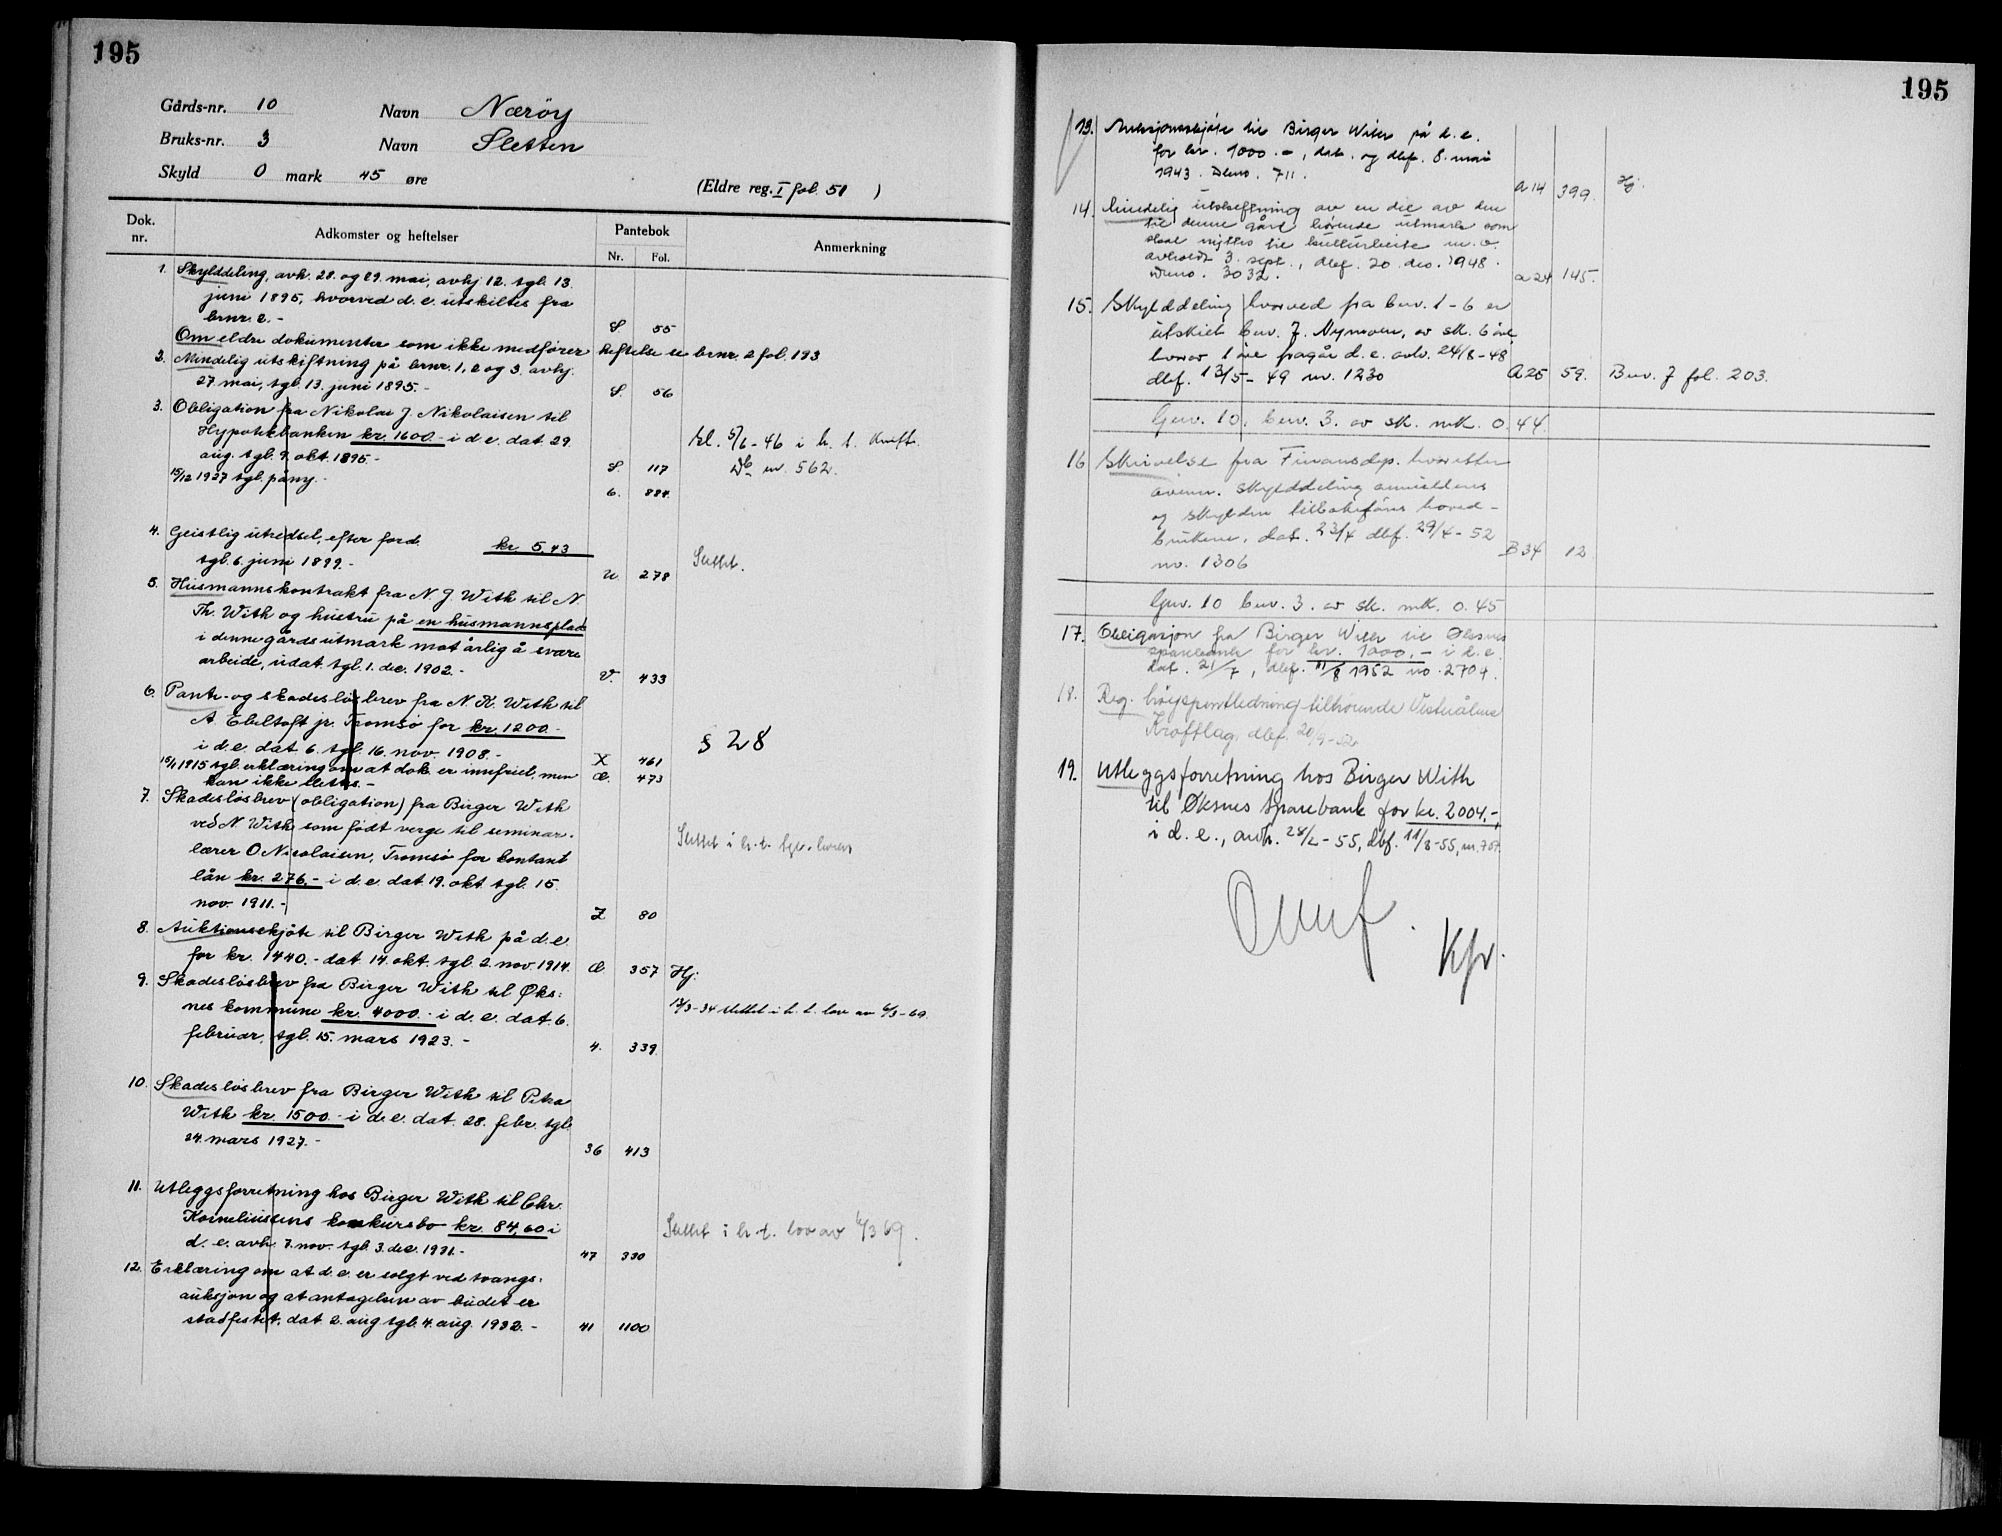 195
Gårds-nr. 10 Navn Nærøy
Bruks-nr. 3 Navn Sletten
Skyld 0 mark 45 øre
(Eldre reg. I fol. 51 )
Dok. nr. Adkomster og heftelser Pantebok Nr. Fol. Anmerkning
1. Skylddeling, avh. 28. og 29. mai, avhj. 12. tgl. 13.
juni 1895, hvorved d. e. utskiltes fra
brnr. 2.- S. 55
Om eldre dokumenter som ikke medfører heftelse se brnr. 2 fol. 193
2. Mindelig utskiftning på brnr. 1, 2 og 3. avhj.
27. mai, tgl. 13. juni 1895.- S. 56
3. Obligation fra Nikolai J. Nikolaisen til
Hypotekbanken kr. 1600.- i d. e. dat. 29. Sl. 5/6-46 i h. t. kvitt.
aug. tgl. 9. okt. 1895.- S. 117 Db nr. 562.
15/12 1927 tgl. påny.- 6. 884.
4. Geistlig utredsel, efter ford. kr. 5,43
tgl. 6. juni 1899.- U. 278 Slettet.
5. Husmannskontrakt fra N. J. With til N.
Th. With og hustru på en husmannsplads
i denne gårds utmark mot årlig å svare
arbeide, udat. tgl. 1. dec. 1902.- V. 433
6. Pante- og skadesløsbrev fra N. K. With til
A. Ebeltoft jr. Tromsø for kr. 1200.- § 28
i d. e. dat. 6. tgl. 16. nov. 1908.- X 461
15/1 1915 tgl. erklæring om at dok. er innfriet, men Æ. 473
kan ikke slettes.-
7. Skadesløsbrev (obligation) fra Birger With
ved N. With som født verge til seminar-
lærer O Nicolaisen, Tromsø for kontant Slettet i h. t. tgl. loven
lån kr. 276.- i d. e. dat. 19. okt. tgl. 15.
nov. 1911.- Z 80
8. Auktionsskjøte til Birger With på d. e.
for kr. 1440.- dat. 14. okt. tgl. 2. nov. 1914. Æ 357 Hj.
9. Skadesløsbrev fra Birger With til Øks-
nes kommune kr. 4000.- i d. e. dat. 6. 17/3-34 slettet i h. t. lov av 6/3-69.
februar, tgl. 15. mars 1923.- 4. 339
10. Skadesløsbrev fra Birger With til Petra
With kr. 1500.- i d. e. dat. 28. febr. tgl.
24. mars 1927.- 36 413
11. Utleggsforretning hos Birger With til Chr.
Korneliussens konkursbo kr. 84,60 i Slettet i h. t. lov av 6/3 69.
d. e. avh. 7. nov. tgl. 3. dec. 1931.- 47 330
12. Erklæring om at d. e. er solgt ved tvangs-
auksjon og at antagelsen av budet er
stadfestet, dat. 2. aug tgl. 4. aug. 1932.- 41 1100
195
13. Auksjonsskjøte til Birger With på d. e.
for kr. 1000.-, dat. og dbf. 8. mai
1943. Dbno. 711. A 14 399. Hj.
14. Mindelig utskiftning av en del av den
til denne gård hørende utmark som
skal nyttes til kulturbeite m. v.
avholdt 3. sept., dbf. 20. des. 1948.
Dbno. 3032. A 24 145.
15. Skylddeling hvorved fra bnr. 1-6 er
utskilt bnr. 7. Nymoen, av sk. 6 øre
hvorav 1 øre fragår d. e. avh. 24/8-48
dbf. 13/5-49 nr. 1230 A 25 59. Bnr. 7 fol. 203.
Gnr. 10, bnr. 3. av sk. mk. 0.44.
16 Skrivelse fra Finansdep. hvoretter
ovenn. skylddeling annulleres
og skylden tilbakeføres hoved-
brukene, dat. 23/4 dbf. 29/4-52
nr. 1306 B 34 12
Gnr. 10 bnr. 3. av sk. mk. 0.45
17. Obligasjon fra Birger With til Øksnes
sparebank for kr. 1000.- i d. e.
dat. 21/7, dbf. 11/8 1952 no. 2704.
18. Reg. høyspentledning tilhørende Vesterålens
Kraftlag, dbf. 20/9-52
19. Utleggsforretning hos Birger With
til Øksnes Sparebank for kr. 2004,-,
i d. e., avh. 28/2-55, dbf. 11/3-55, nr. 707.
Omf.
Kfr.